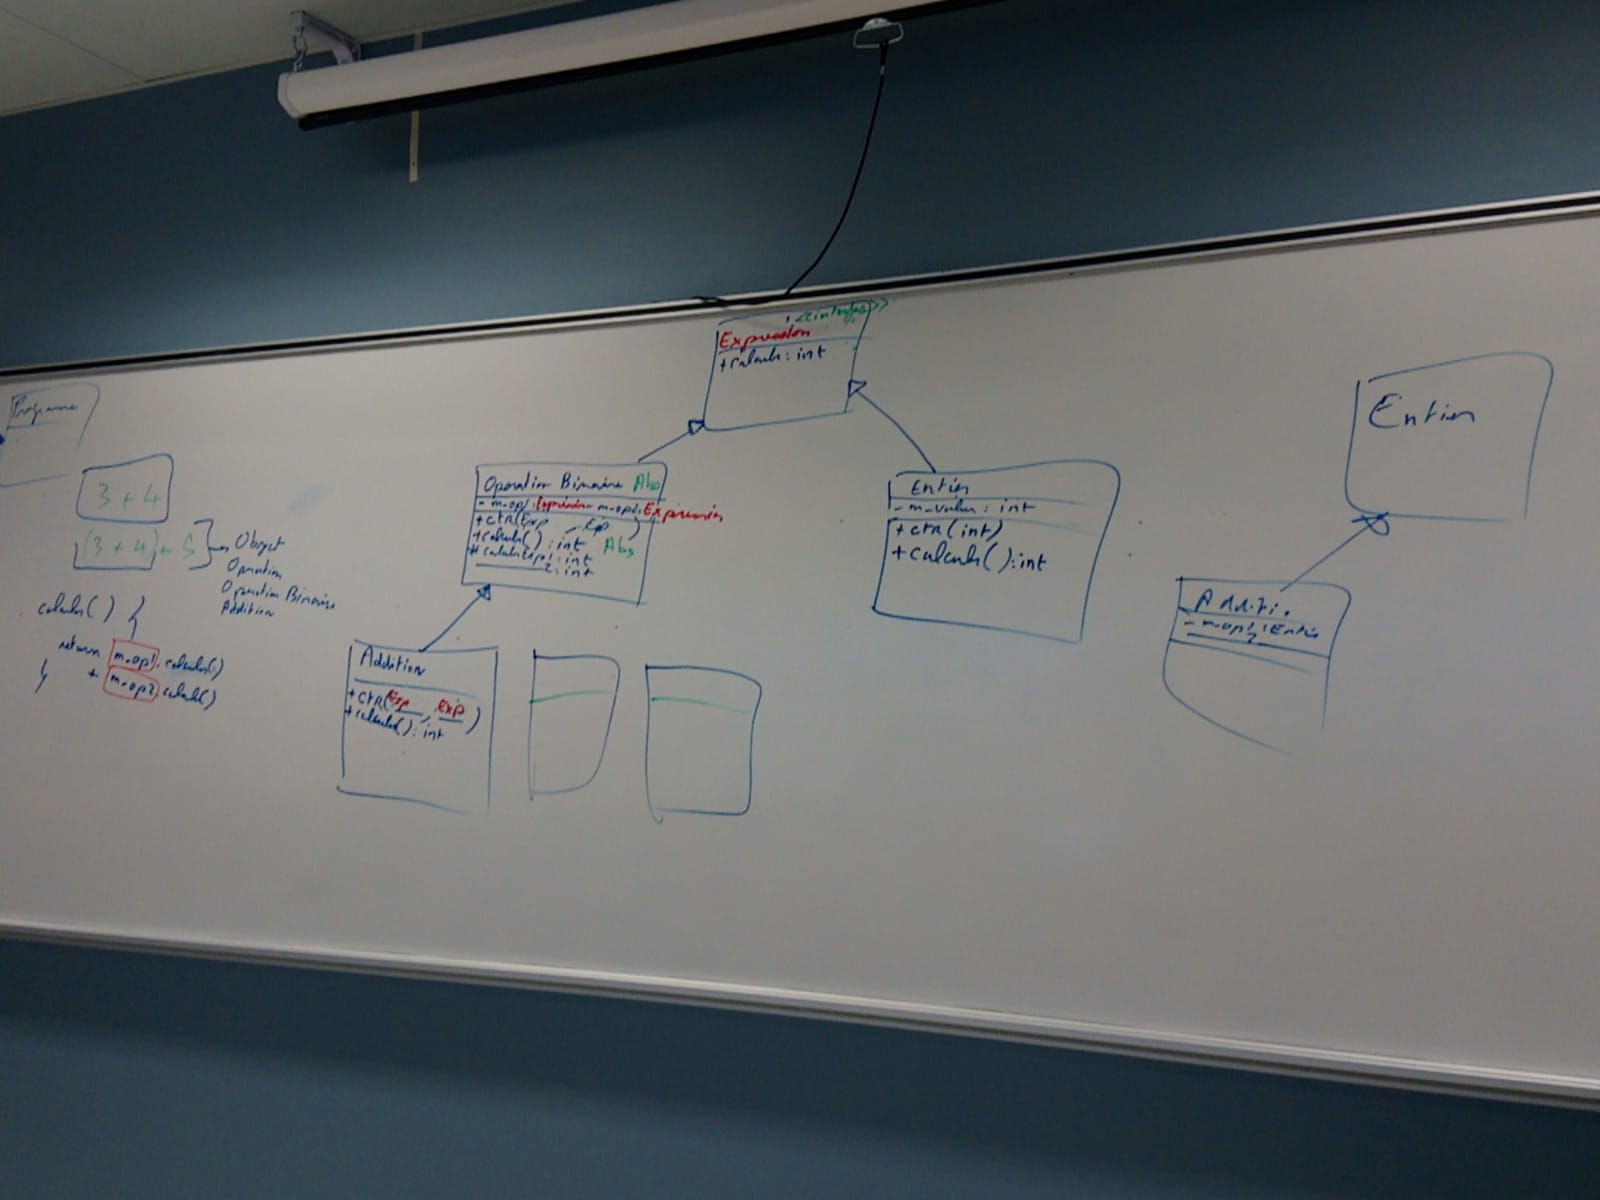 Programme
3 + 4
(3 + 4) + 5
Object
Operation
Operation Binaire
Addition
calculer() {
return m_op1.calculer()
+ m_op2.calculer()
}
<<interface>>
Expression
+ calculer : int
Operation Binaire Abs
- m_op1: Expression - m_op2: Expression
+ ctr(Exp , Exp )
+ calculer() : int Abs
# calculerExp1 : int
2 : int
Addition
+ ctr(Exp , Exp)
+ calculer() : int
Entier
- m_valeur : int
+ ctr(int)
+ calculer() : int
Entier
Additi.
- m_op1 : Entier
2